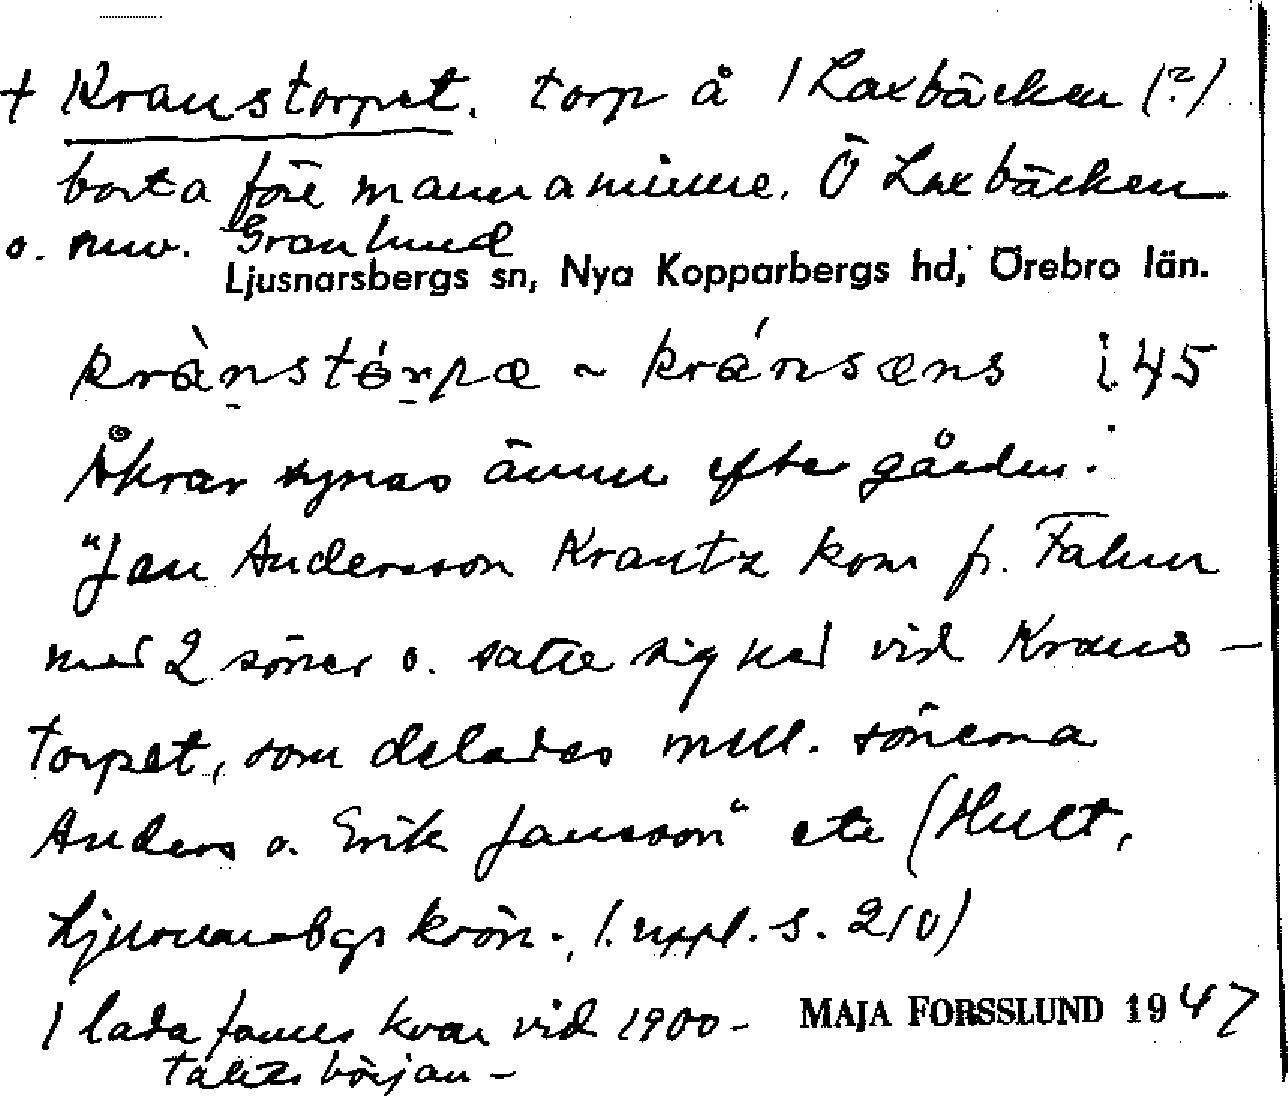 + Kranstorpet. torp å 1 Laxbäcken (?)
borta före mannaminne. Ö Laxbäcken
o. nuv. Granlund
Ljusnarsbergs sn, Nya Kopparbergs hd, Örebro län.
krànstórpæ ~ kránsæns i 45
Åkrar synas ännu efter gården.
"Jan Andersson Krantz kom fr. Falun
med 2 söner o. satte sig ned vid Krans-
torpet, som delades mell. sönerna
Anders o. Erik Jansson" etc (Hult,
Ljusnarsbgs krön., 1. uppl. s. 210)
1 lada fanns kvar vid 1900-
MAJA FORSSLUND 1947
talets början -